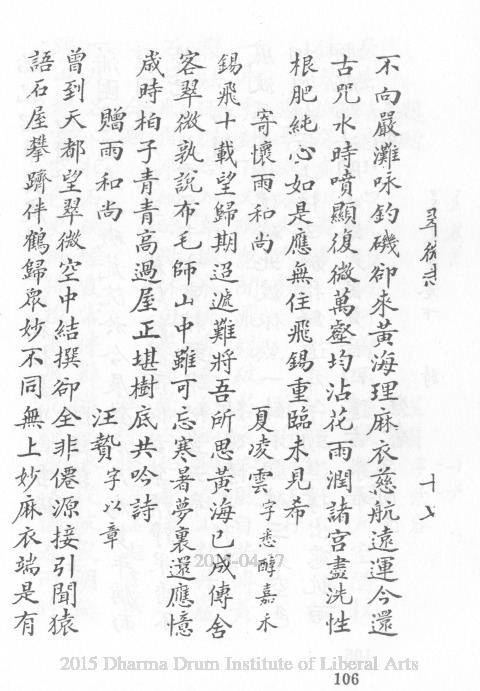 翠微志
不向嚴灘咏釣磯卻來黃海理麻衣慈航遠運今還
古咒水時噴顯復微萬壑均沾花雨潤諸宮盡洗性
根肥純心如是應無住飛錫重臨未見希
寄懷雨和尚　夏凌雲字惎醇嘉禾
錫飛十載望歸期迢遞難將吾所思黃海已成傳舍
客翠微孰說布毛師山中雖可忘寒暑夢裏還應憶
歲時柏子青青高過屋正堪樹底共吟詩
贈雨和尚　汪贄字以章
曾到天都望翠微空中結撰卻全非僊源接引聞猿
語石屋攀躋伴鶴歸眾妙不同無上妙麻衣端是有
2015-04-17
2015 Dharma Drum Institute of Liberal Arts
106